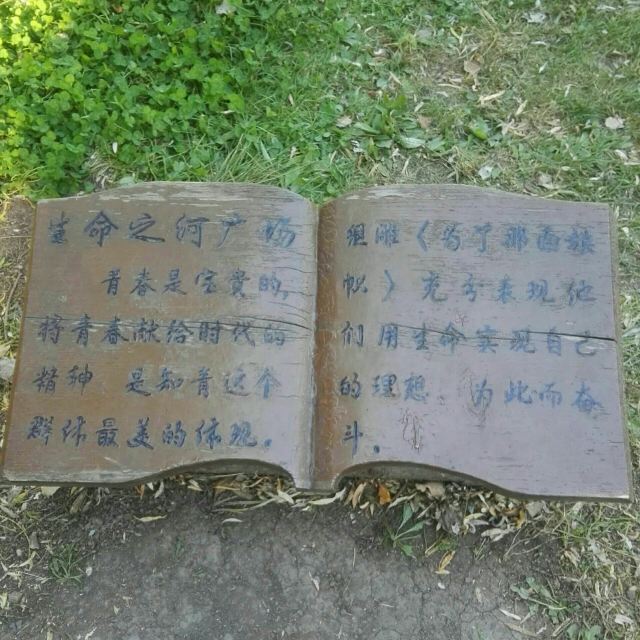 生命之河广场
青春是宝贵的,
将青春献给时代的
精神 是知青这个
群体最美的体现。
组雕《为了那面旗
帜》充分表现他
们用生命实现自己
的理想 为此而奋
斗。